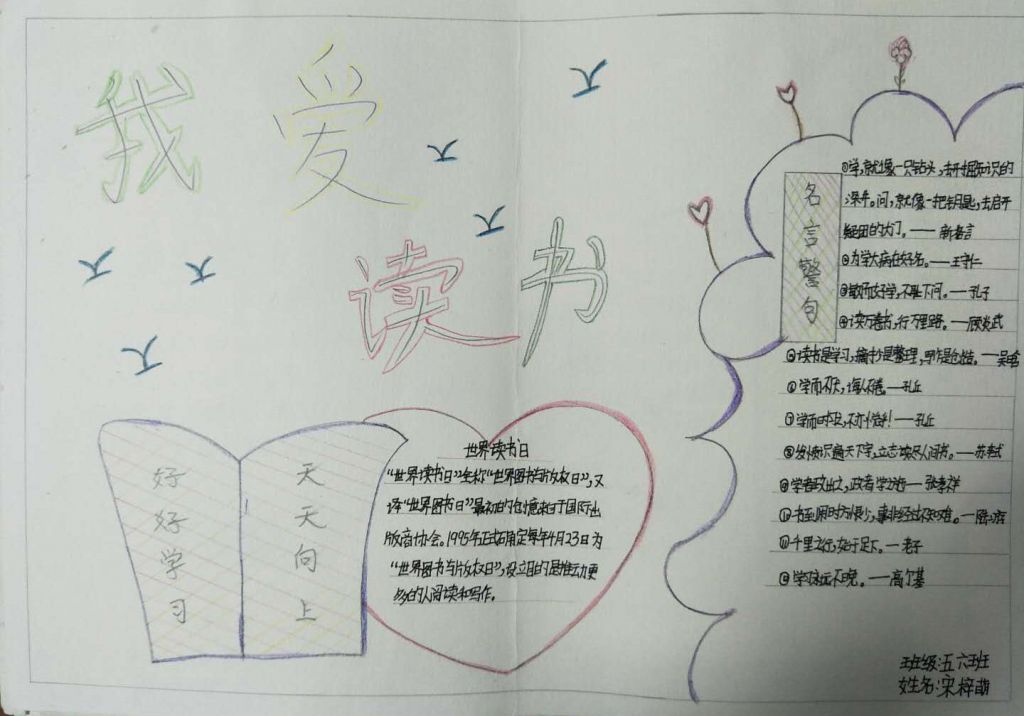 我爱
读书
好好学习
天天向上
世界读书日
“世界读书日”全称“世界图书与版权日”,又
译“世界图书日”最初的创意来自于国际出
版商协会。1995年正式确定每年4月23日为
“世界图书与版权日”,设立目的是推动更
多的人阅读和写作。
名言警句
①学,就像一只钻头,去开掘知识的
深井。问,就像一把钥匙,去启开
疑团的大门。——
②为学大病在好名。——王守仁
③敏而好学,不耻下问。——孔子
④读万卷书,行万里路。——顾炎武
⑤读书是学习,摘抄是整理,写作是创造。——吴晗
⑥学而不厌,诲人不倦。——孔丘
⑦学而时习之,不亦说乎!——孔丘
⑧发愤识遍天下字,立志读尽人间书。——苏轼
学者
书到用时方恨少,事非经过不知难。——陆游
千里之行,始于足下。——老子
学习永远不晚。——高尔基
班级:五六班
姓名:宋梓萌